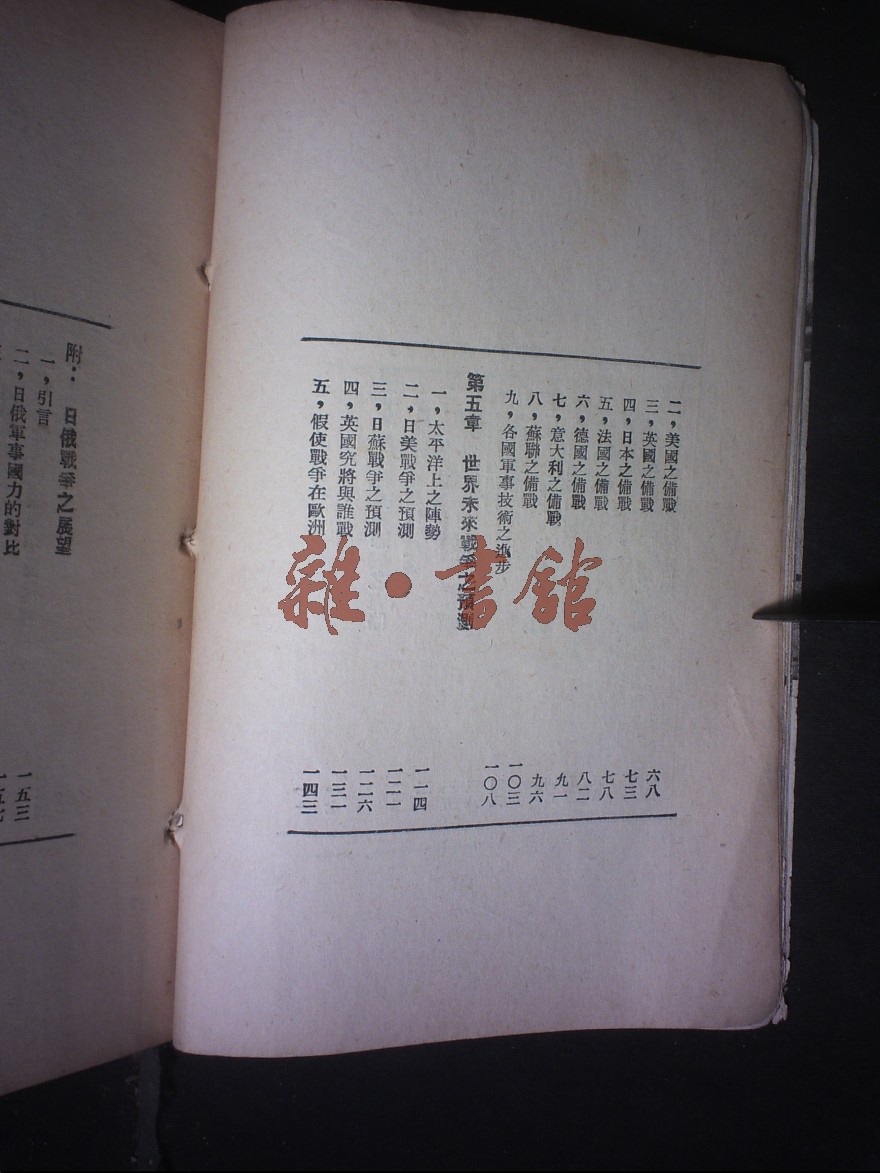 二，美國之備戰 六八
三，英國之備戰 七三
四，日本之備戰 七八
五，法國之備戰 八二
六，德國之備戰 九一
七，意大利之備戰 九六
八，蘇聯之備戰 一〇三
九，各國軍事技術之進步 一〇八
第五章 世界未來戰爭之預測
一，太平洋上之陣勢 一一四
二，日美戰爭之預測 一二一
三，日蘇戰爭之預測 一二六
四，英國究將與誰戰 一三一
五，假使戰爭在歐洲 一四三
附： 日俄戰爭之展望
一，引言 一五三
二，日俄軍事國力的對比 一五七
雜·書館